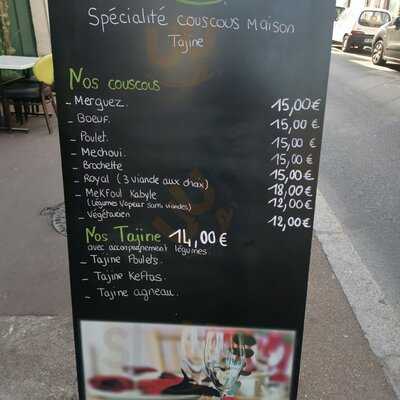 Spécialité couscous maison
Tajine
Nos couscous
_ Merguez. 15,00€
_ Boeuf. 15,00 €
_ Poulet. 15,00 €
_ Mechoui. 15,00 €
_ Brochette 15,00€
_ Royal (3 viande aux choix) 18,00 €
_ Mekfoul Kabyle 12,00€
(Légumes Vapeur sans viandes)
_ Végétarien 12,00€
Nos Tajine 14,00€
avec accompagnement légumes.
_ Tajine Poulets.
_ Tajine Keftas.
_ Tajine agneau.